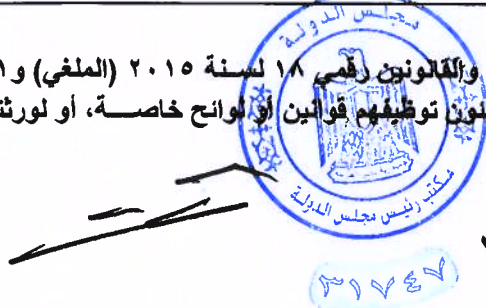 والقانونين رقمي ١٨ لسنة ٢٠١٥ (الملغي) و١
توظيفهم قوانين أو لوائح خاصة، أو لورثة
مجلس الدولة
مكتب رئيس مجلس الدولة
٣١٧٤٧